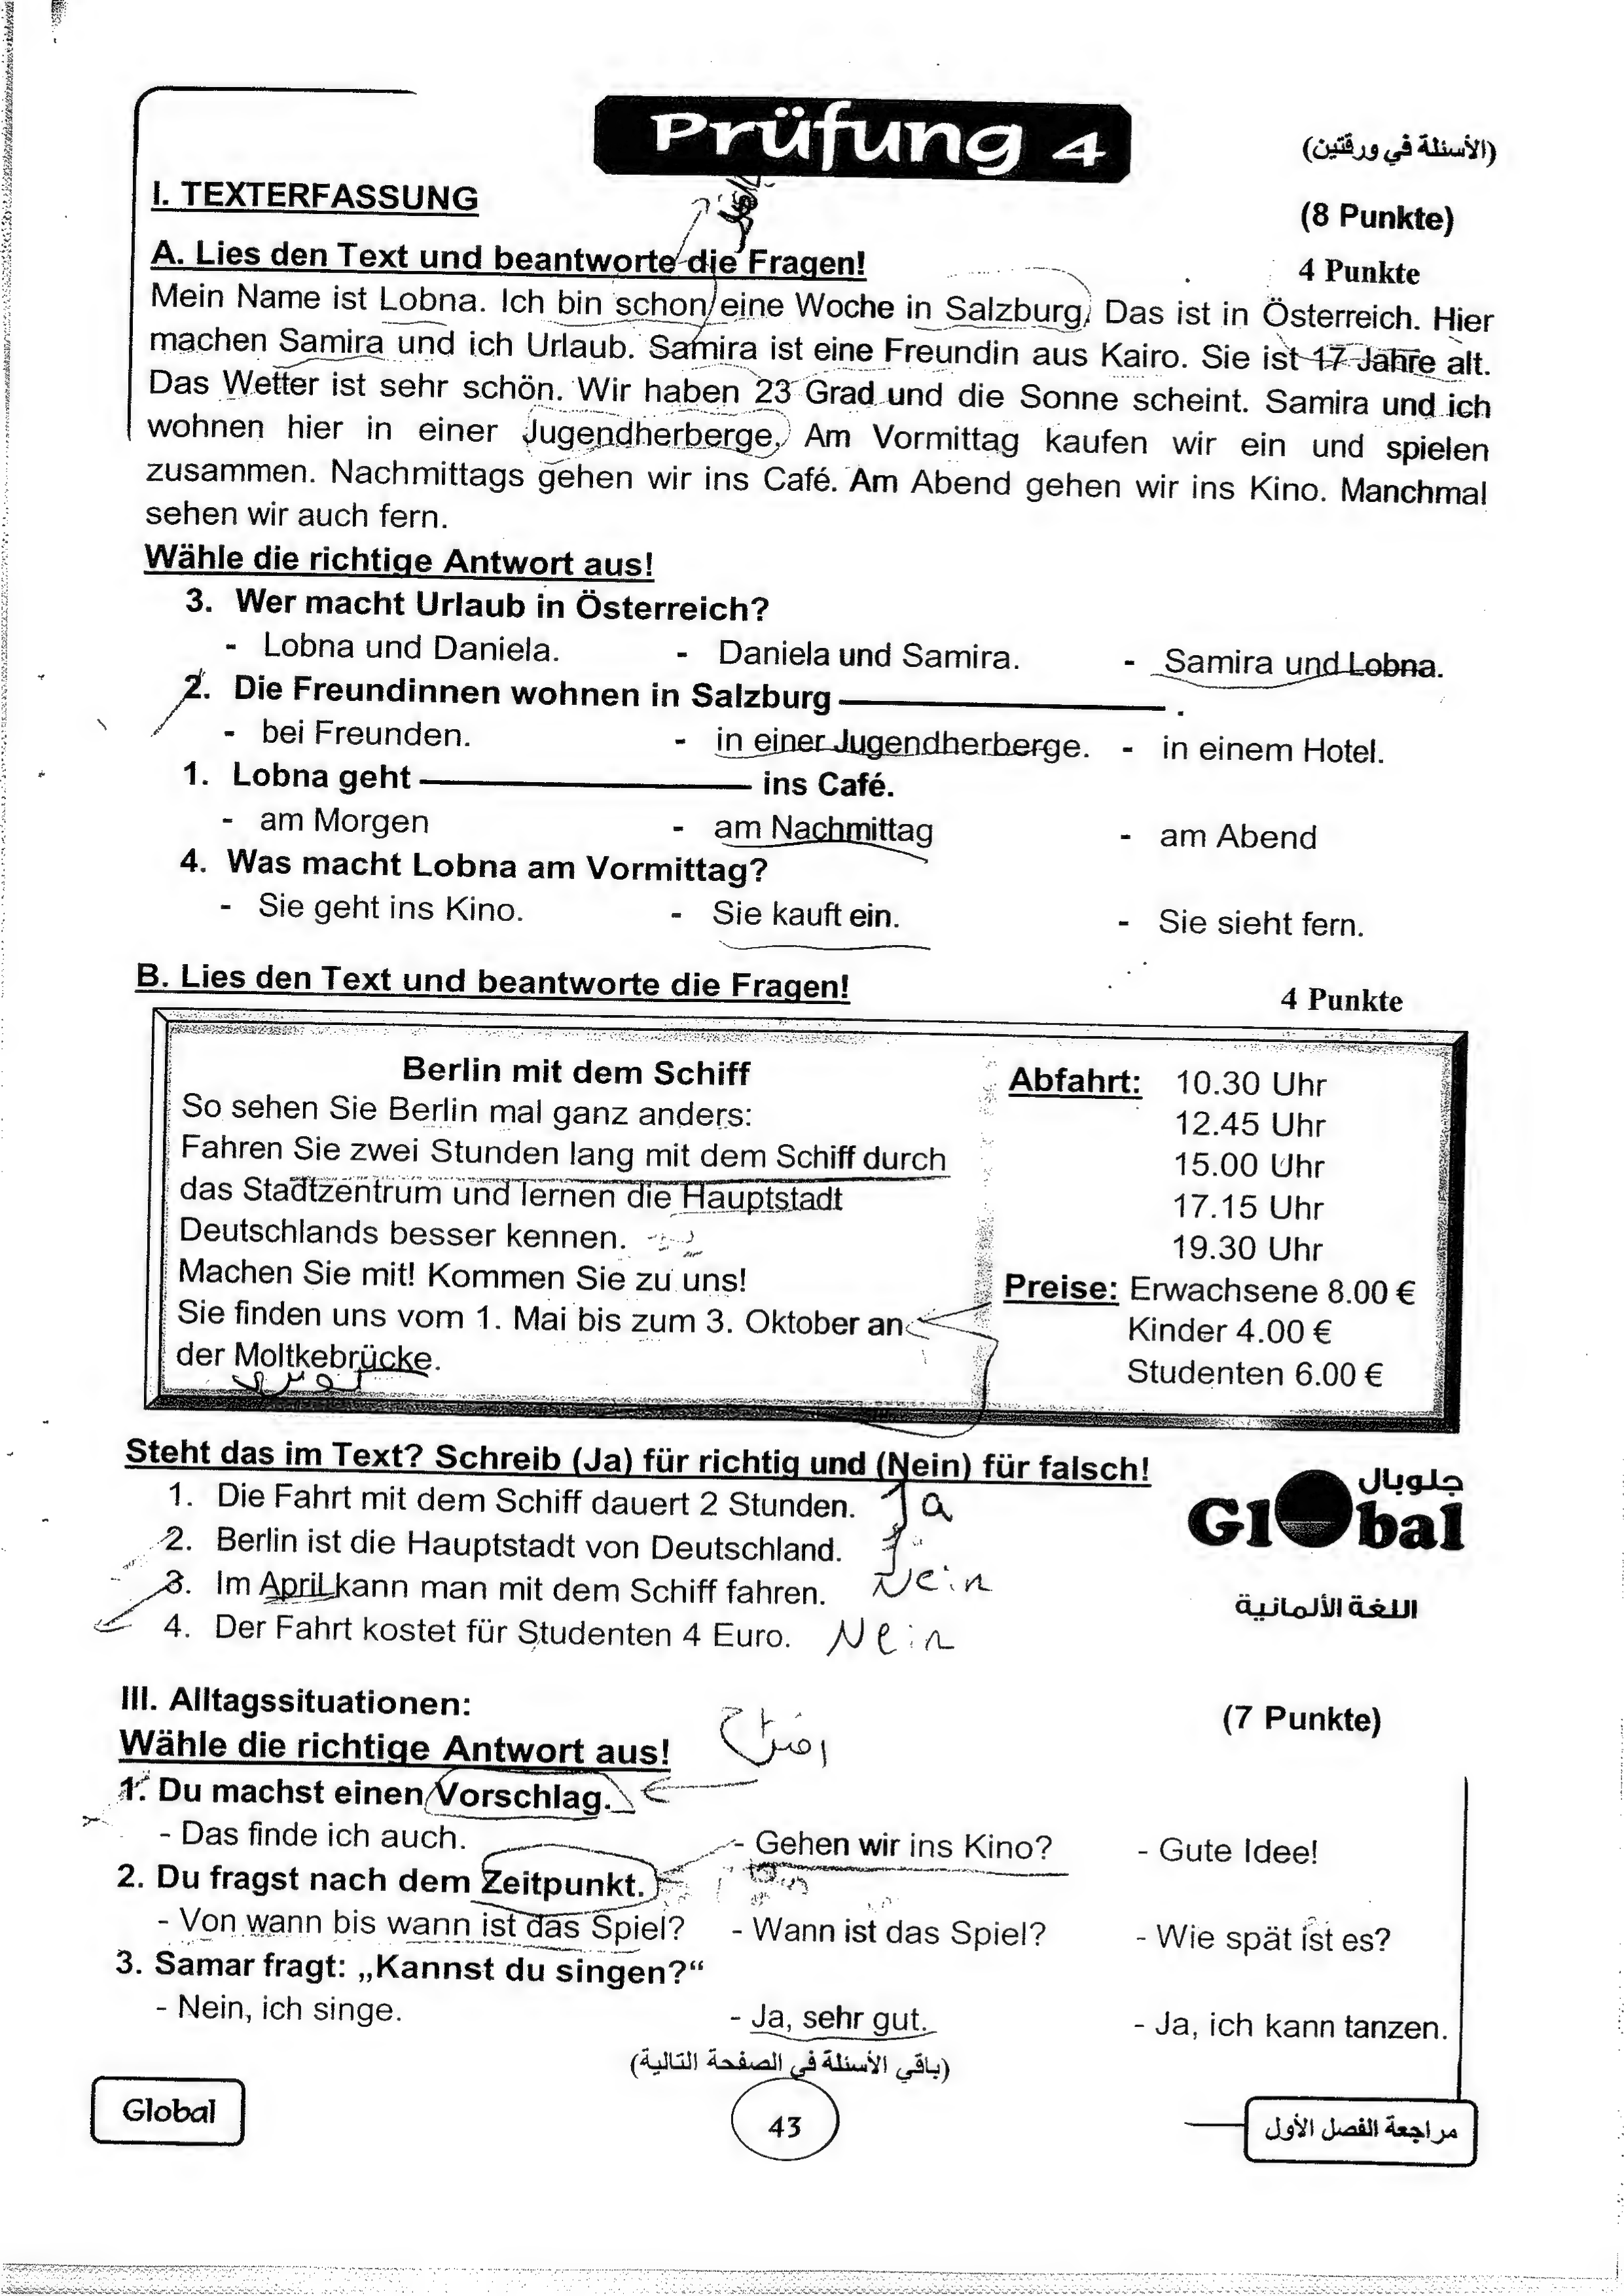 Prüfung 4
(الأسئلة في ورقتين)
I. TEXTERFASSUNG
(8 Punkte)
A. Lies den Text und beantworte die Fragen!
4 Punkte
Mein Name ist Lobna. Ich bin schon eine Woche in Salzburg. Das ist in Österreich. Hier
machen Samira und ich Urlaub. Samira ist eine Freundin aus Kairo. Sie ist 17 Jahre alt.
Das Wetter ist sehr schön. Wir haben 23 Grad und die Sonne scheint. Samira und ich
wohnen hier in einer Jugendherberge. Am Vormittag kaufen wir ein und spielen
zusammen. Nachmittags gehen wir ins Café. Am Abend gehen wir ins Kino. Manchmal
sehen wir auch fern.
Wähle die richtige Antwort aus!
3. Wer macht Urlaub in Österreich?
- Lobna und Daniela. - Daniela und Samira. - Samira und Lobna.
2. Die Freundinnen wohnen in Salzburg ——— .
- bei Freunden. - in einer Jugendherberge. - in einem Hotel.
1. Lobna geht ——— ins Café.
- am Morgen - am Nachmittag - am Abend
4. Was macht Lobna am Vormittag?
- Sie geht ins Kino. - Sie kauft ein. - Sie sieht fern.
B. Lies den Text und beantworte die Fragen!
4 Punkte
Berlin mit dem Schiff
So sehen Sie Berlin mal ganz anders:
Fahren Sie zwei Stunden lang mit dem Schiff durch
das Stadtzentrum und lernen die Hauptstadt
Deutschlands besser kennen.
Machen Sie mit! Kommen Sie zu uns!
Sie finden uns vom 1. Mai bis zum 3. Oktober an
der Moltkebrücke.
Abfahrt: 10.30 Uhr
12.45 Uhr
15.00 Uhr
17.15 Uhr
19.30 Uhr
Preise: Erwachsene 8.00 €
Kinder 4.00 €
Studenten 6.00 €
Steht das im Text? Schreib (Ja) für richtig und (Nein) für falsch!
1. Die Fahrt mit dem Schiff dauert 2 Stunden. Ja
2. Berlin ist die Hauptstadt von Deutschland.
3. Im April kann man mit dem Schiff fahren. Nein
4. Der Fahrt kostet für Studenten 4 Euro. Nein
جلوبال
Global
اللغة الألمانية
III. Alltagssituationen:
(7 Punkte)
Wähle die richtige Antwort aus!
اقتراح
1. Du machst einen Vorschlag.
- Das finde ich auch. - Gehen wir ins Kino? - Gute Idee!
2. Du fragst nach dem Zeitpunkt.
- Von wann bis wann ist das Spiel? - Wann ist das Spiel? - Wie spät ist es?
3. Samar fragt: „Kannst du singen?“
- Nein, ich singe. - Ja, sehr gut. - Ja, ich kann tanzen.
(باقي الأسئلة في الصفحة التالية)
Global
43
مراجعة الفصل الأول